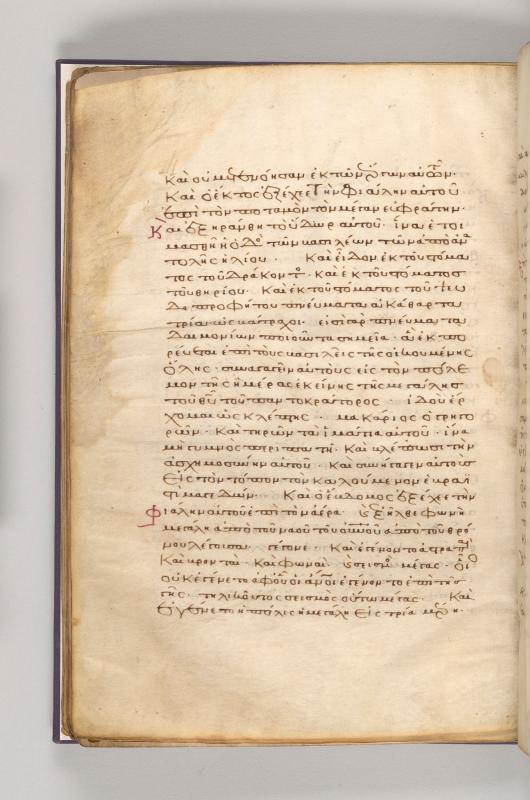 καὶ οὐ μετενόησαν ἐκ τῶν ἔργων αὐτῶν·
Καὶ ὁ ἕκτος ἐξέχεε τὴν φιάλην αὐτοῦ
ἐπὶ τὸν ποταμὸν τὸν μέγαν εὐφράτην·
Καὶ ἐξηράνθη τὸ ὕδωρ αὐτοῦ· ἵνα ἑτοι
μασθῇ ἡ ὁδὸς τῶν βασιλέων τῶν ἀπὸ ἀνα
τολῆς ἡλίου· Καὶ εἶδον ἐκ τοῦ στόμα
τος τοῦ δράκοντος· Καὶ ἐκ τοῦ στόματος
τοῦ θηρίου· Καὶ ἐκ τοῦ στόματος τοῦ ψευ
δοπροφήτου πνεύματα ἀκάθαρτα
τρία ὡς βάτραχοι· εἰσὶ γὰρ πνεύματα
δαιμονίων ποιοῦντα σημεῖα· ἃ ἐκπο
ρεύεται ἐπὶ τοὺς βασιλεῖς τῆς οἰκουμένης
ὅλης· συναγαγεῖν αὐτοὺς εἰς τὸν πόλε
μον τῆς ἡμέρας ἐκείνης τῆς μεγάλης
τοῦ θυ τοῦ παντοκράτορος· ἰδοὺ ἔρ
χομαι ὡς κλέπτης· μακάριος ὁ γρηγο
ρῶν· Καὶ τηρῶν τὰ ἱμάτια αὐτοῦ· ἵνα
μὴ γυμνὸς περιπατῇ· Καὶ βλέπωσι τὴν
ἀσχημοσύνην αὐτοῦ· Καὶ συνήγαγεν αὐτοὺς
εἰς τὸν τόπον τὸν καλούμενον ἑβραϊ
στὶ μαγεδών· Καὶ ὁ ἕβδομος ἐξέχεε τὴν
φιάλην αὐτοῦ ἐπὶ τὸν ἀέρα· καὶ ἐξῆλθε φωνὴ
μεγάλη ἀπὸ τοῦ ναοῦ τοῦ οὐνοῦ ἀπὸ τοῦ θρό
νου λέγουσα· γέγονε· Καὶ ἐγένοντο ἀστραπαὶ
Καὶ βρονταὶ· Καὶ φωναὶ· καὶ σεισμὸς μέγας· οἷος
οὐκ ἐγένετο ἀφ' οὗ οἱ ἄνοι ἐγένοντο ἐπὶ τῆς
γῆς· τηλικοῦτος σεισμὸς οὕτω μέγας· Καὶ
ἐγένετο ἡ πόλις ἡ μεγάλη εἰς τρία μέρη·